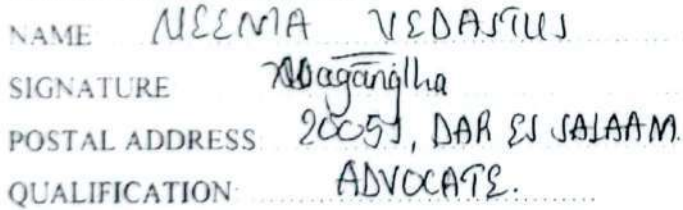 NAME NEEMA VEDASTUS
SIGNATURE
POSTAL ADDRESS: 20051, DAR ES SALAAM.
QUALIFICATION ADVOCATE.